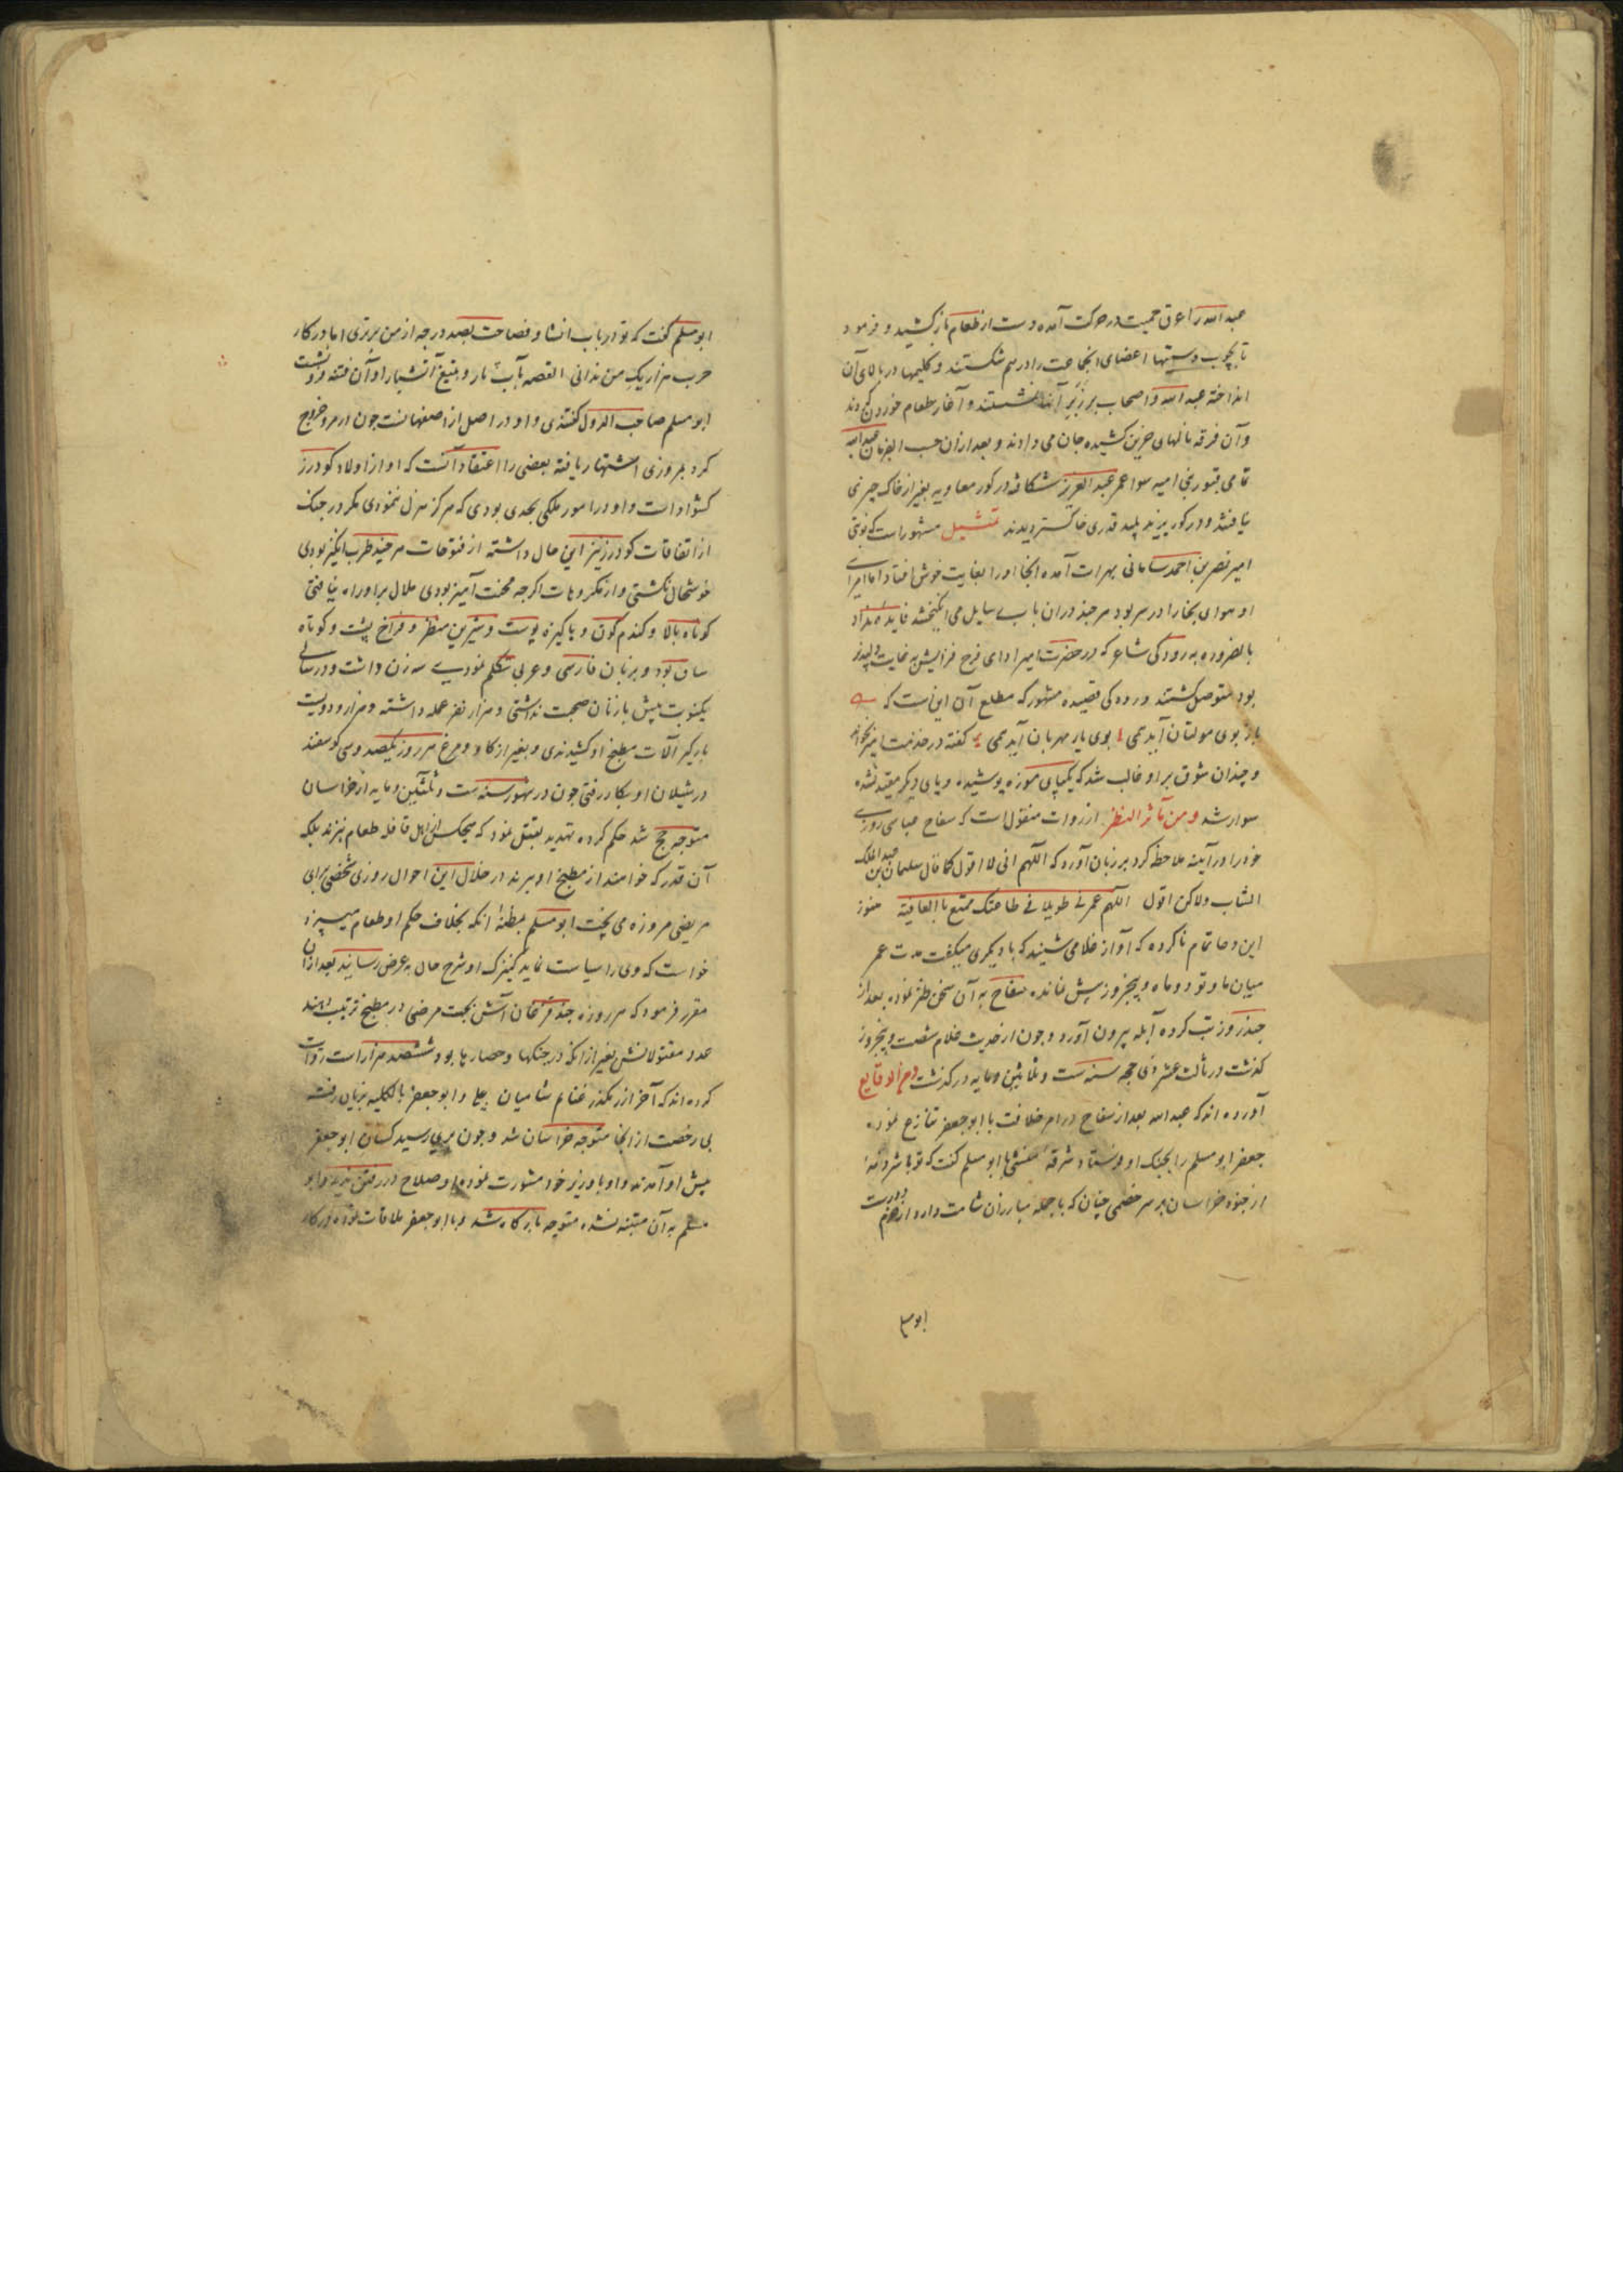 عبد الله را عرق حمیت در حرکت آمده دست از طعام بازکشید و فرمود
تا بچوب دستیها اعضای انجماعت را درهم شکستند و کلیمها در بالای آن
انداخته عبد الله و اصحاب بر زبر آنها نشستند و آغاز طعام خوردن کردند
وآن فرقه نالهای حزین کشیده جان می دادند و بعد ازان حسب الفرمان عبد الله
تمامی قبور بنی امیه سوا عمر عبد العزیز شکافته در کور معاویه بغیر از خاک چیزی
نیافتند و در کور یزید پلید قدری خاکستر دیدند تمثیل مشهور است که نوبتی
امیر نصر بن احمد سامانی بهرات آمده انجا او را بغایت خوش افتاد اما امرای
او هوای بخارا در سر بود هر چند دران باب وسایل می انکیختند فایده نداد
بالضروره به رودکی شاعر که در حضرت امیر ادای فرح فزایش به غایت دلپذیر
بود متوصل کشتند و رودکی قصیده مشهور که مطلع آن این است که
باز بوی مولیان آید همی بوی یار مهربان آید همی گفته در خدمت امیر بخواند
و چندان شوق بر او غالب شد که یکپای موزه پوشیده و پای دیکر مقید نشده
سوار شد و من تأثر النظر از روات منقول است که سفاح عباسی روزی
خود را در آینه ملاحظه کرد بر زبان آورد که اللهم انی لا اقول کما قال سلیمان بن عبد الملک
الشاب ولاکن اقول اللهم عمرنی طویلا فی طاعتک ممتع باالعافیة هنوز
این دعا تمام ناکرده که آواز غلامی شنید که با دیکری میکفت مدت عمر
میان ما و تو دو ماه و پنجروز بیش نمانده سفاح به آن سخن طیر نموده بعد از
چند روز تب کرده آبله بیرون آورد و چون از حدیث غلام شصت و پنجروز
کذشت در ثالث عشر ذی حجه سنه ست و ثلاثین و مایه درکذشت و من الوقایع
آورده اند که عبد الله بعد از سفاح در امر خلافت با ابو جعفر تنازع نموده
جعفر ابو مسلم را بجنک او فرستاد با ابو مسلم کفت که تو با شرذمهٔ
از جنود خراسان بر سر خصمی چنان که با جمله مبارزان شامت دارد از حزم دور است
ابو مسلم
ابو مسلم کفت که تو در باب انشا و فصاحت بصد درجه از من برتری اما در کار
حرب هزار یک من ندانی القصه بآب تار و بتیغ آتشبار او آن فتنه فرونشت
ابو مسلم صاحب الدول کفتندی و او در اصل از اصفهانست چون از مرو خروج
کرد بمروزی اشتهار یافته بعضی را اعتقاد آنست که او از اولاد کودرز
کشواد است و او در امور ملکی بجدی بودی که هرکز هزل ننمودی مکر در جنک
از اتفاقات کودرز نیز این حال داشته از فتوحات هر چند طرب انکیز بودی
خوشحال نکشتی و از مکروهات اکرچه محنت آمیز بودی ملال براو راه نیافتی
کوتاه بالا و کندم کون و پاکیزه پوست و شیرین منظر و فراخ پشت و کوتاه
ساق بود و بزبان فارسی و عربی تکلم نمودی سه زن داشت و در سالی
یکنوبت بیش با زنان صحبت نداشتی و هزار نفر عمله داشته و هزار و دویست
بارکیر آلات مطبخ او کشیدندی و بغیر از کاو و مرغ هر روز یکصد وسی کوسفند
در شیلان او بکار رفتی چون در شهور سنه ست و ثلثین و مایه از خراسان
متوجه حج شد حکم کرده تهدید بقتل نمود که هیچکس از اهل قافله طعام نپزند بلکه
آن قدر که خواهند از مطبخ او برند در خلال این احوال روزی شخصی برای
مریضی مزوره می پخت ابو مسلم بمظنهٔ آنکه بخلاف حکم او طعام میپزد
خواست که وی را سیاست نماید کنیزک او شرح حال به عرض رسانید بعد ازان
مقرر فرمود که هر روزه چند قزخان آش بجهت مرضی در مطبخ ترتیب دهند
عدد مقتولانش بغیر از انکه در جنکها و حصارها بود ششصد هزار است روایت
کرده اند که آخر از رهکذر غنایم شامیان میان او و ابو جعفر بالکلیه بزیان رفت
بی رخصت از انجا متوجه خراسان شد و چون بری رسید کسان ابو جعفر
پیش او آمدند و او با وزیر خود مشورت نموده او صلاح در رفتن ندید و ابو
مسلم به آن متنبه نشده متوجه بارکاه شد و با ابو جعفر ملاقات نموده در کار